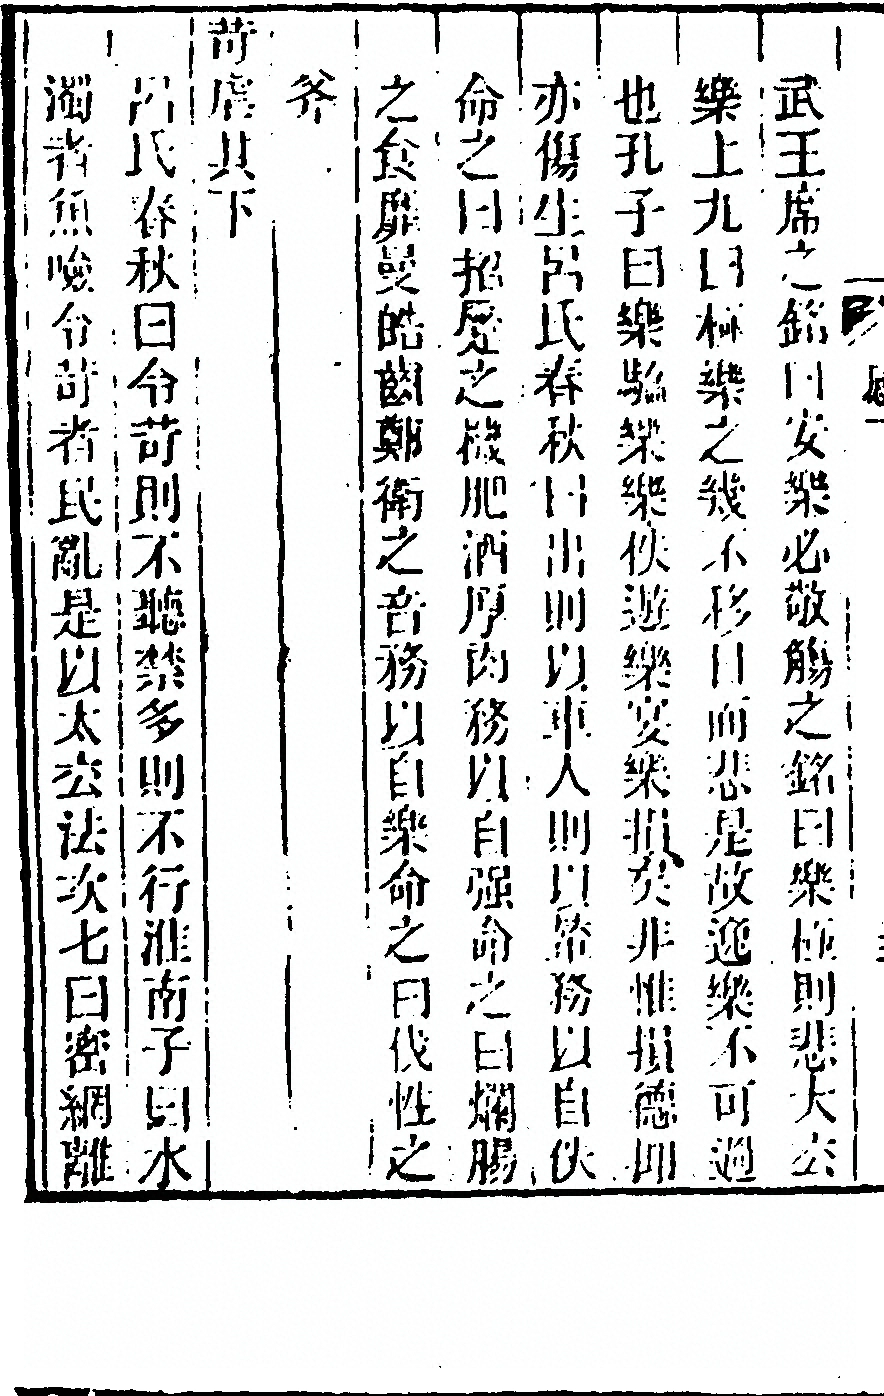 武王席之銘曰安樂必敬觴之銘曰樂極則悲太公
樂上九曰極樂之幾不移日而悲是故逸樂不可過
也孔子曰樂驕樂樂佚遊樂宴樂損矣非惟損德抑
亦傷生呂氏春秋曰出則以車入則以輦務以自佚
命之曰招蹷之機肥酒厚肉務以自强命之曰爛腸
之食靡曼皓齒鄭衛之音務以自樂命之曰伐性之
斧
苛虐其下
呂氏春秋曰令苛則不聽禁多則不行淮南子曰水
濁者魚噞令苛者民亂是以太公法次七曰密網離